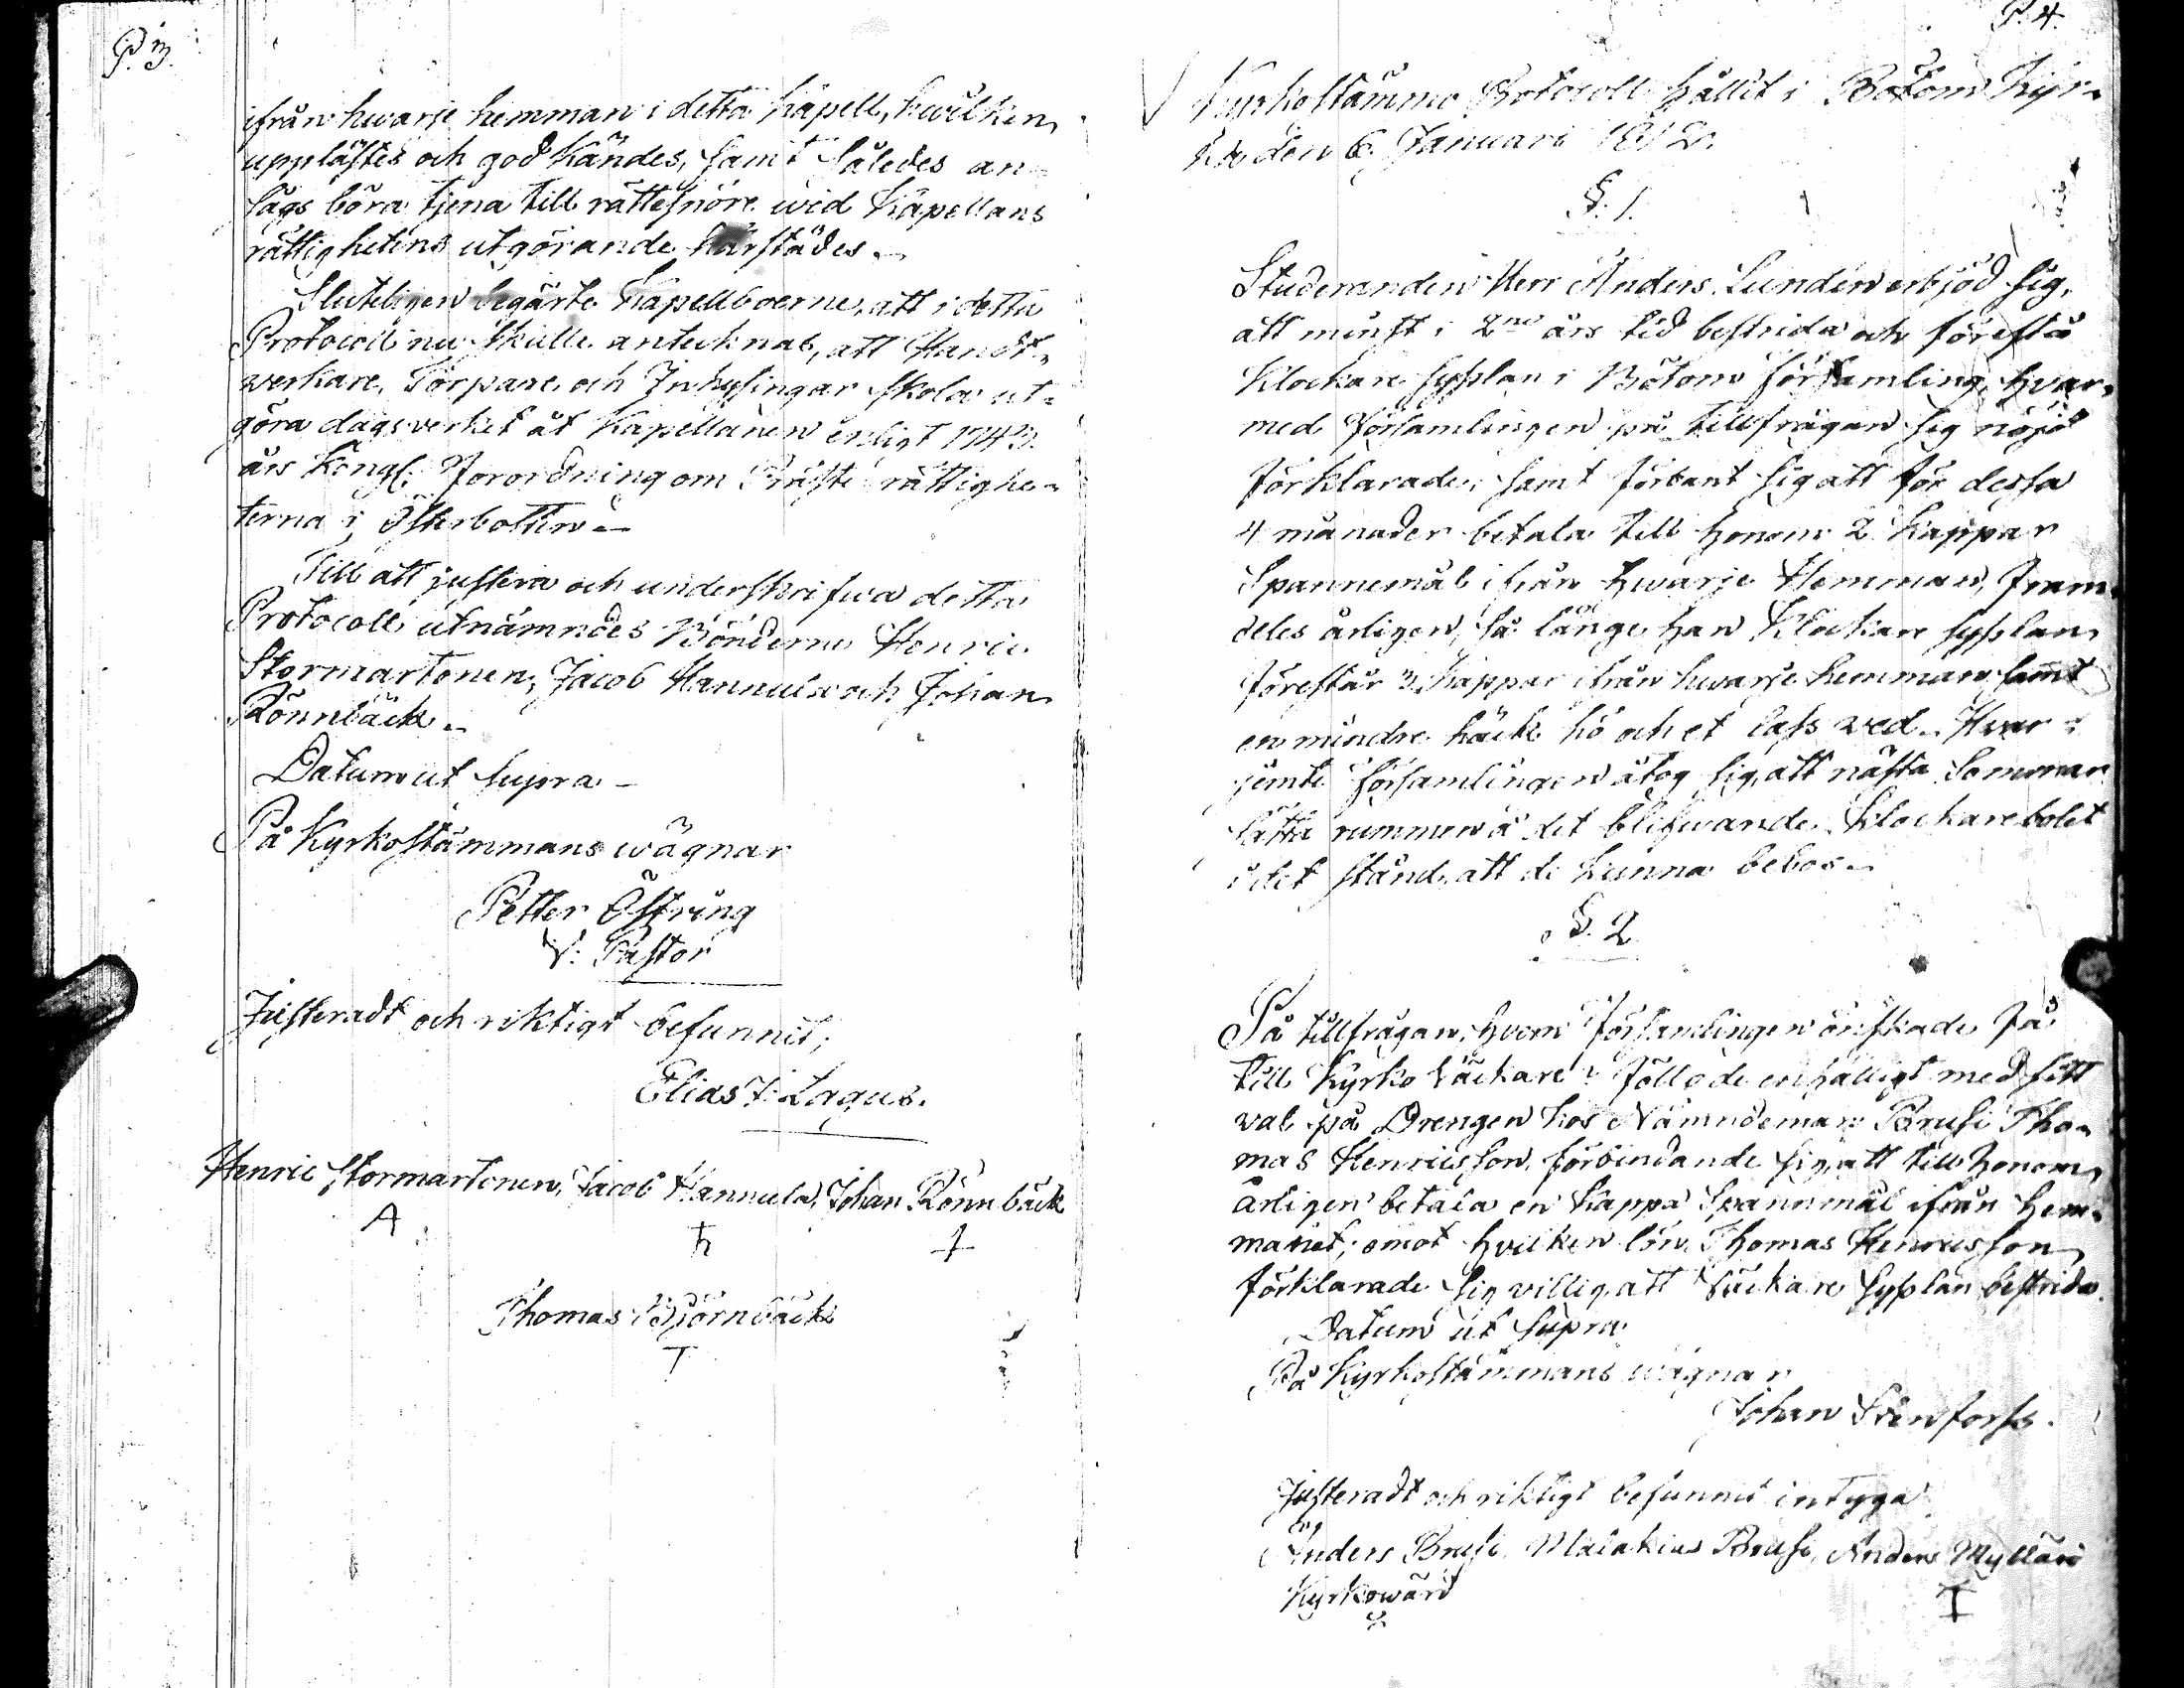 P. 3.
ifrån hwarje hemman i detta kapell, hwilken
upplästes och godkändes, samt således an-
sågs böra tjena till rättesnöre wid Kapellans
rättighetens utgörande härstädes.
Sluteligen begärte Kapellboerne, att i detta
Protocoll nu skulle antecknas, att Handt-
verkare, Torpare och Inhysingar skola ut-
göra dagsverket åt Kapellanen enligt
års Kongl: Förordning om Präste rättighe-
terna i Österbotten.
Till att justera och underskrifwa detta
Protocoll utnämndes Bönderne Henric
Stormartonen, Jacob Hannula och Johan
Rönnbäck.
Datum ut supra
På Kyrkostämmans wägnar
Petter Östring
V: Pastor
Justeradt och riktigt befunnit;
Elias J: Lagus.
Henric Stormartonen, Jacob Hannula, Johan Rönnbäck
Thomas Björnbäck
P. 4.
Kyrkostämmo Protocoll hållit i Bötom Kyr-
ka den 6 Januari 1812.
§. 1.
Studeranden Herr Anders Lundén erbjöd sig,
att minst i 2ne års tid bestrida och förestå
Klockare sysslan i Bötom församling, hvar-
med Församlingen på tillfrågan sig nöjd
förklarade, samt förbant sig att för dessa
4 månader betala till honom 2 kappar
Spannemål ifrån hwarje Hemman, fram-
deles årligen, så länge han Klockare sysslan
förestår 3 kappar ifrån hwarje hemman samt
en mindre häck hö och et lass ved. Hvar-
jemte församlingen åtog sig, att nästa Sommar
sätta rummen å det blifwande Klockarebolet
i det stånd, att de kunna bebos.
§. 2
På tillfrågan, hvem Församlingen önskade få
till Kyrko väckare? föll de enhälligt med sitt
val på Drengen hos Nämndeman Brusi Tho-
mas Henricsson, förbindande sig, att till honom
årligen betala en kappa Spannmål ifrån hem-
manet; emot hvilken lön Thomas Henricsson
förklarade sig villig att väckare sysslan bestrida.
Datum ut supra
På Kyrkostämmans wägnar
Johan Svenforss.
Justeradt och riktigt befunnit intyga
Anders Brusi, Malakias Brusi, Anders Mylläri
Kyrkowärd